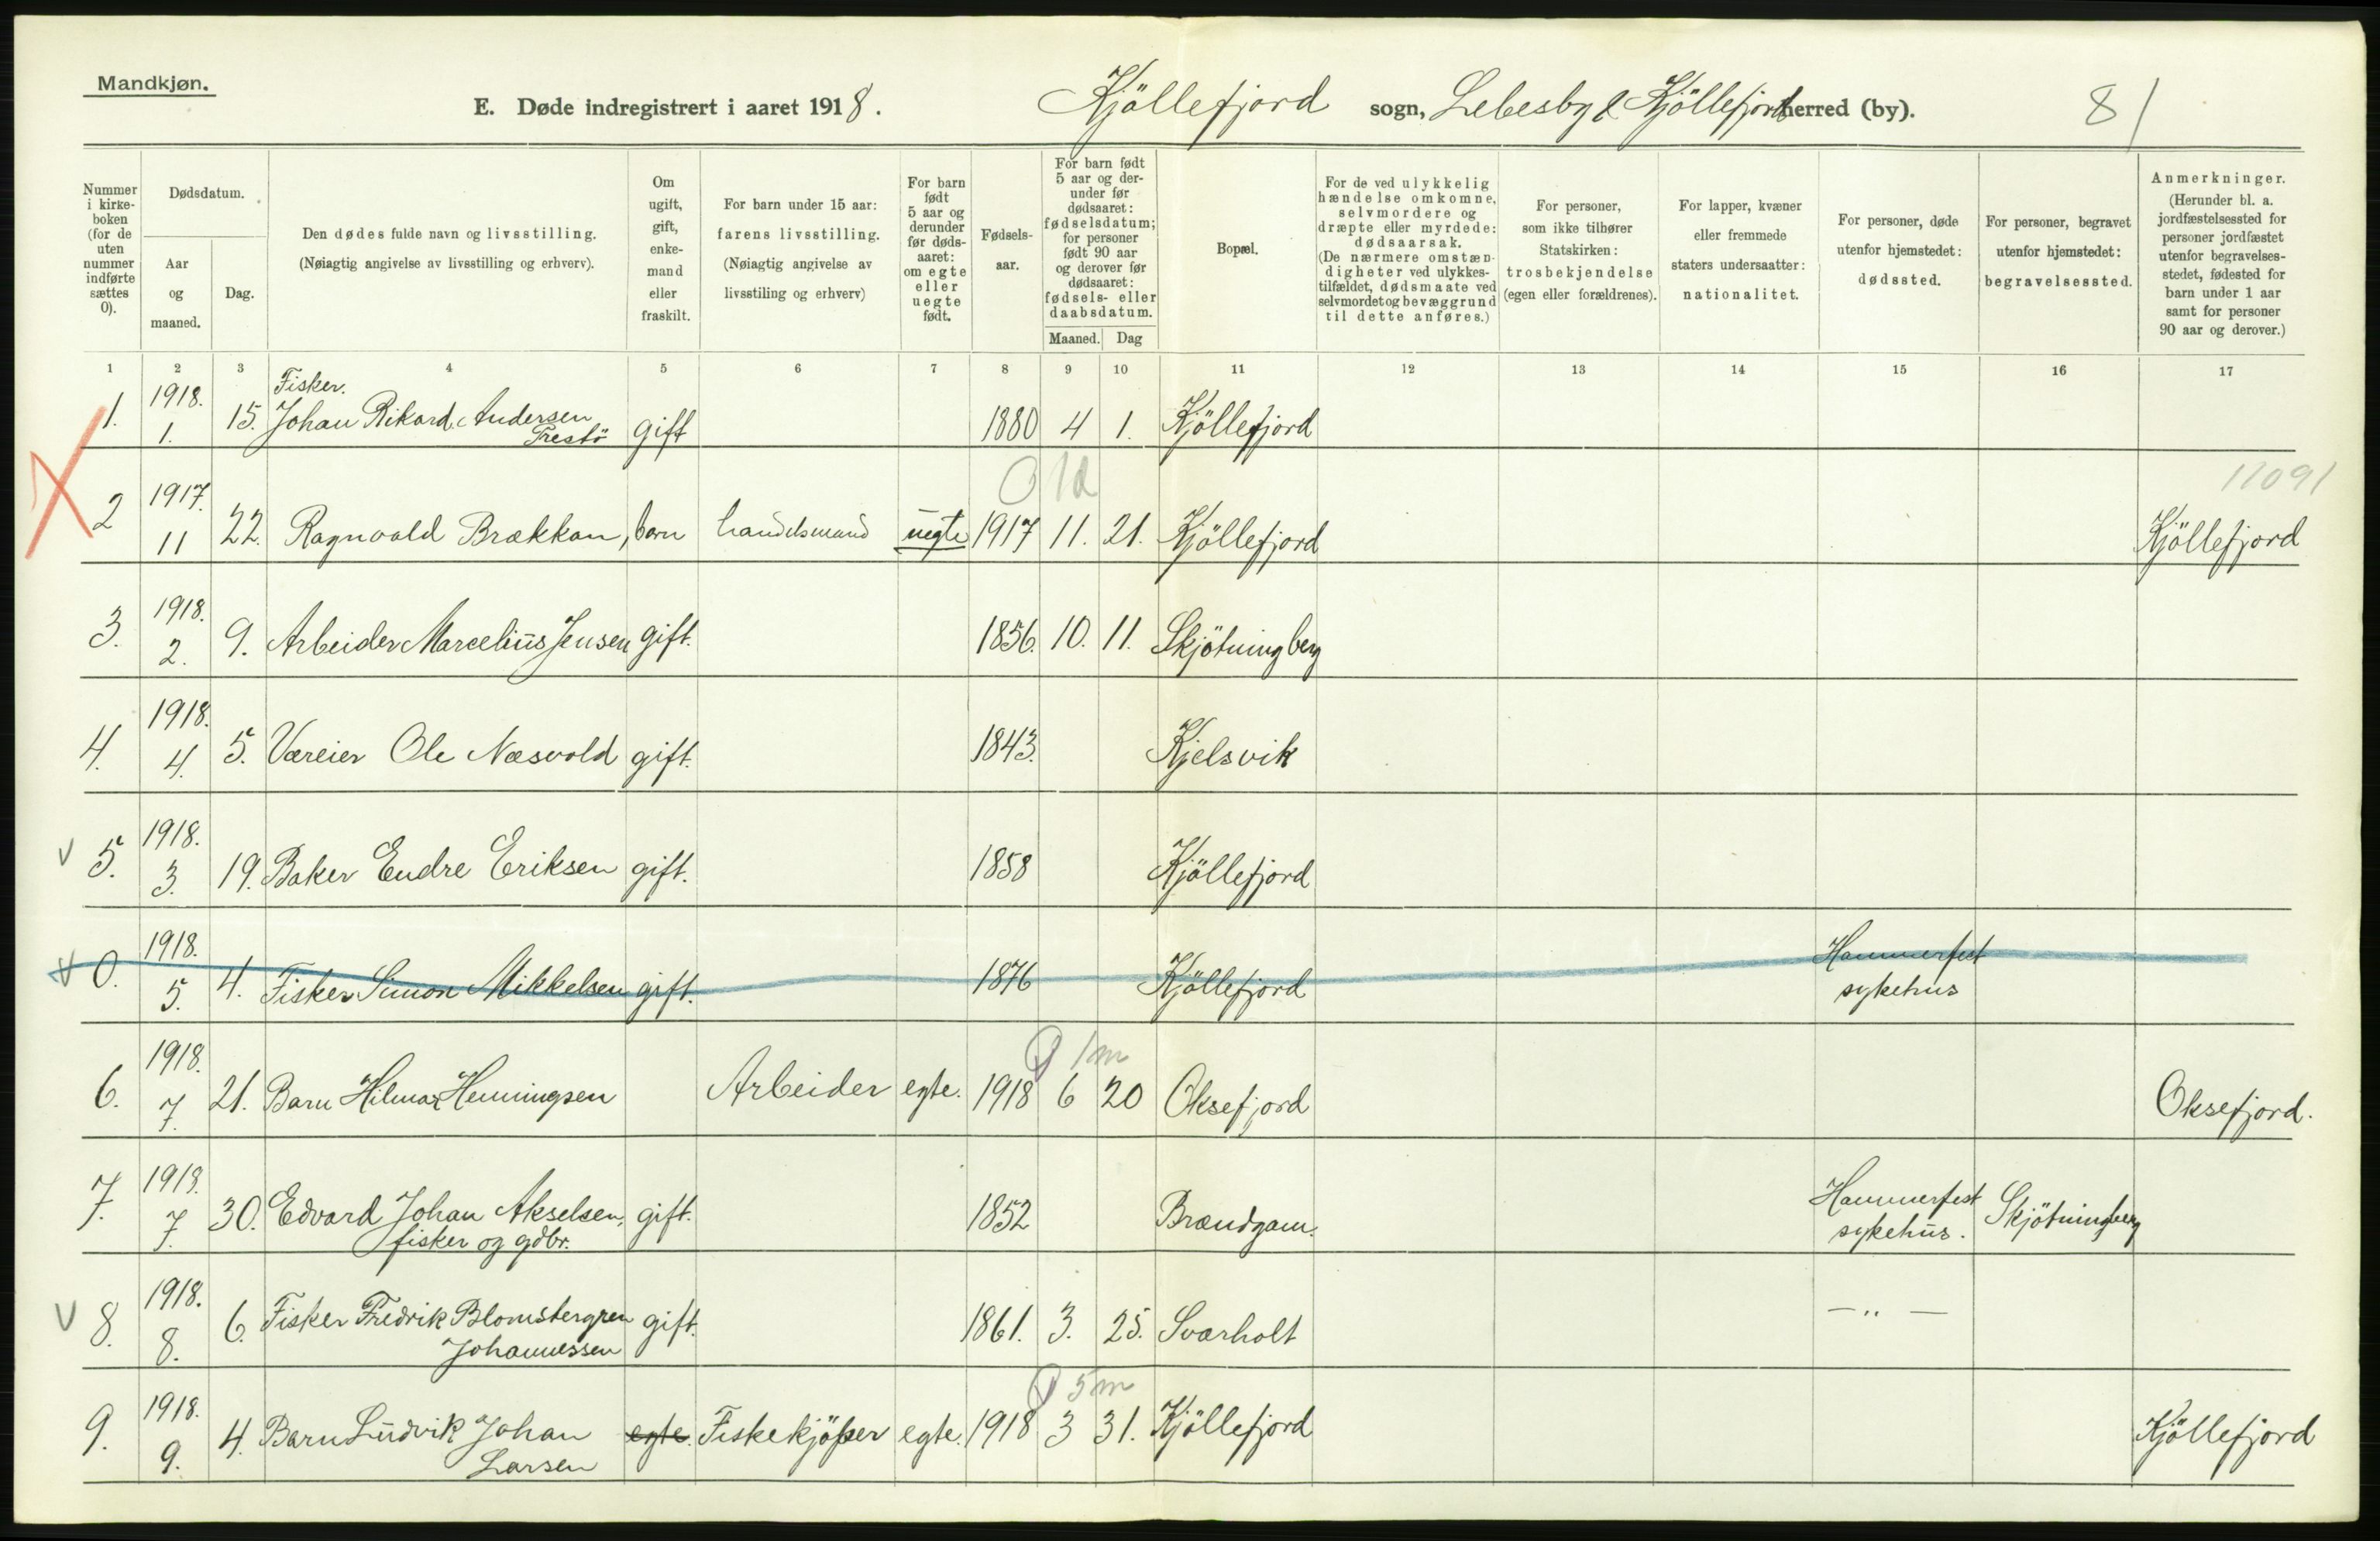 Mandkjøn.
E. Døde indregistrert i aaret 1918. Kjöllefjord sogn, Lebesby & Kjöllefjord herred (by). 81
Nummer i kirke-boken (for de uten nummer indførte sættes 0).
Dødsdatum.
Aar og maaned.
Dag.
Den dødes fulde navn og livsstilling.
(Nøiagtig angivelse av livsstilling og erhverv).
Om ugift, gift, enke-mand eller fraskilt.
For barn under 15 aar: farens livsstilling.
(Nøiagtig angivelse av livsstiling og erhverv)
For barn født 5 aar og derunder før døds-aaret: om egte eller uegte født.
Fødsels-aar.
For barn født 5 aar og der-under før dødsaaret: fødselsdatum; for personer født 90 aar og derover før dødsaaret: fødsels- eller daabsdatum.
Maaned. Dag
Bopæl.
For de ved ulykkelig hændelse omkomne, selvmordere og dræpte eller myrdede: dødsaarsak.
(De nærmere omstæn-digheter ved ulykkes-tilfældet, dødsmaate ved selvmordet og bevæggrund til dette anføres.)
For personer, som ikke tilhører Statskirken: trosbekjendelse (egen eller forældrenes).
For lapper, kvæner eller fremmede staters undersaatter: nationalitet.
For personer, døde utenfor hjemstedet: dødssted.
For personer, begravet utenfor hjemstedet: begravelsessted.
Anmerkninger.
(Herunder bl. a. jordfæstelsessted for personer jordfæstet utenfor begravelses-stedet, fødested for barn under 1 aar samt for personer 90 aar og derover.)
1 2 3 4 5 6 7 8 9 10 11 12 13 14 15 16 17
1. 1918. 1. 15. Fisker. Johan Rikard Andersen Trestö gift 1880 4 1. Kjöllefjord
0 1d 11091
2 1917. 11 22. Ragnvald Brækkan, barn handelsmand uegte 1917 11. 21. Kjöllefjord Kjöllefjord
3. 1918. 2. 9. Arbeider Marcelius Jensen gift. 1856. 10. 11. Skjötningberg
4. 1918. 4. 5. Væreier Ole Næsvold gift. 1843. Kjelsvik
v 5. 1918. 3. 19. Baker Endre Eriksen gift. 1858 Kjöllefjord
v 0. 1918. 5. 4. Fisker Simon Mikkelsen gift. 1876 Kjöllefjord Hammerfest sykehus
0 1m
6. 1918. 7. 21. Barn Hilmar Henningsen Arbeider egte. 1918 6 20 Oksefjord Oksefjord.
7. 1918. 7. 30. Edvard Johan Akselsen, fisker og gdbr. gift. 1852 Brændgam. Hammerfest sykehus. Skjötningberg
v 8. 1918. 8. 6. Fisker Fredrik Blomstergren Johannessen gift. 1861. 3. 25. Sværholt — " —
0 5m
9. 1918. 9. 4. Barn Ludvik Johan Larsen egte. Fiskekjöper egte. 1918 3 31. Kjöllefjord Kjöllefjord